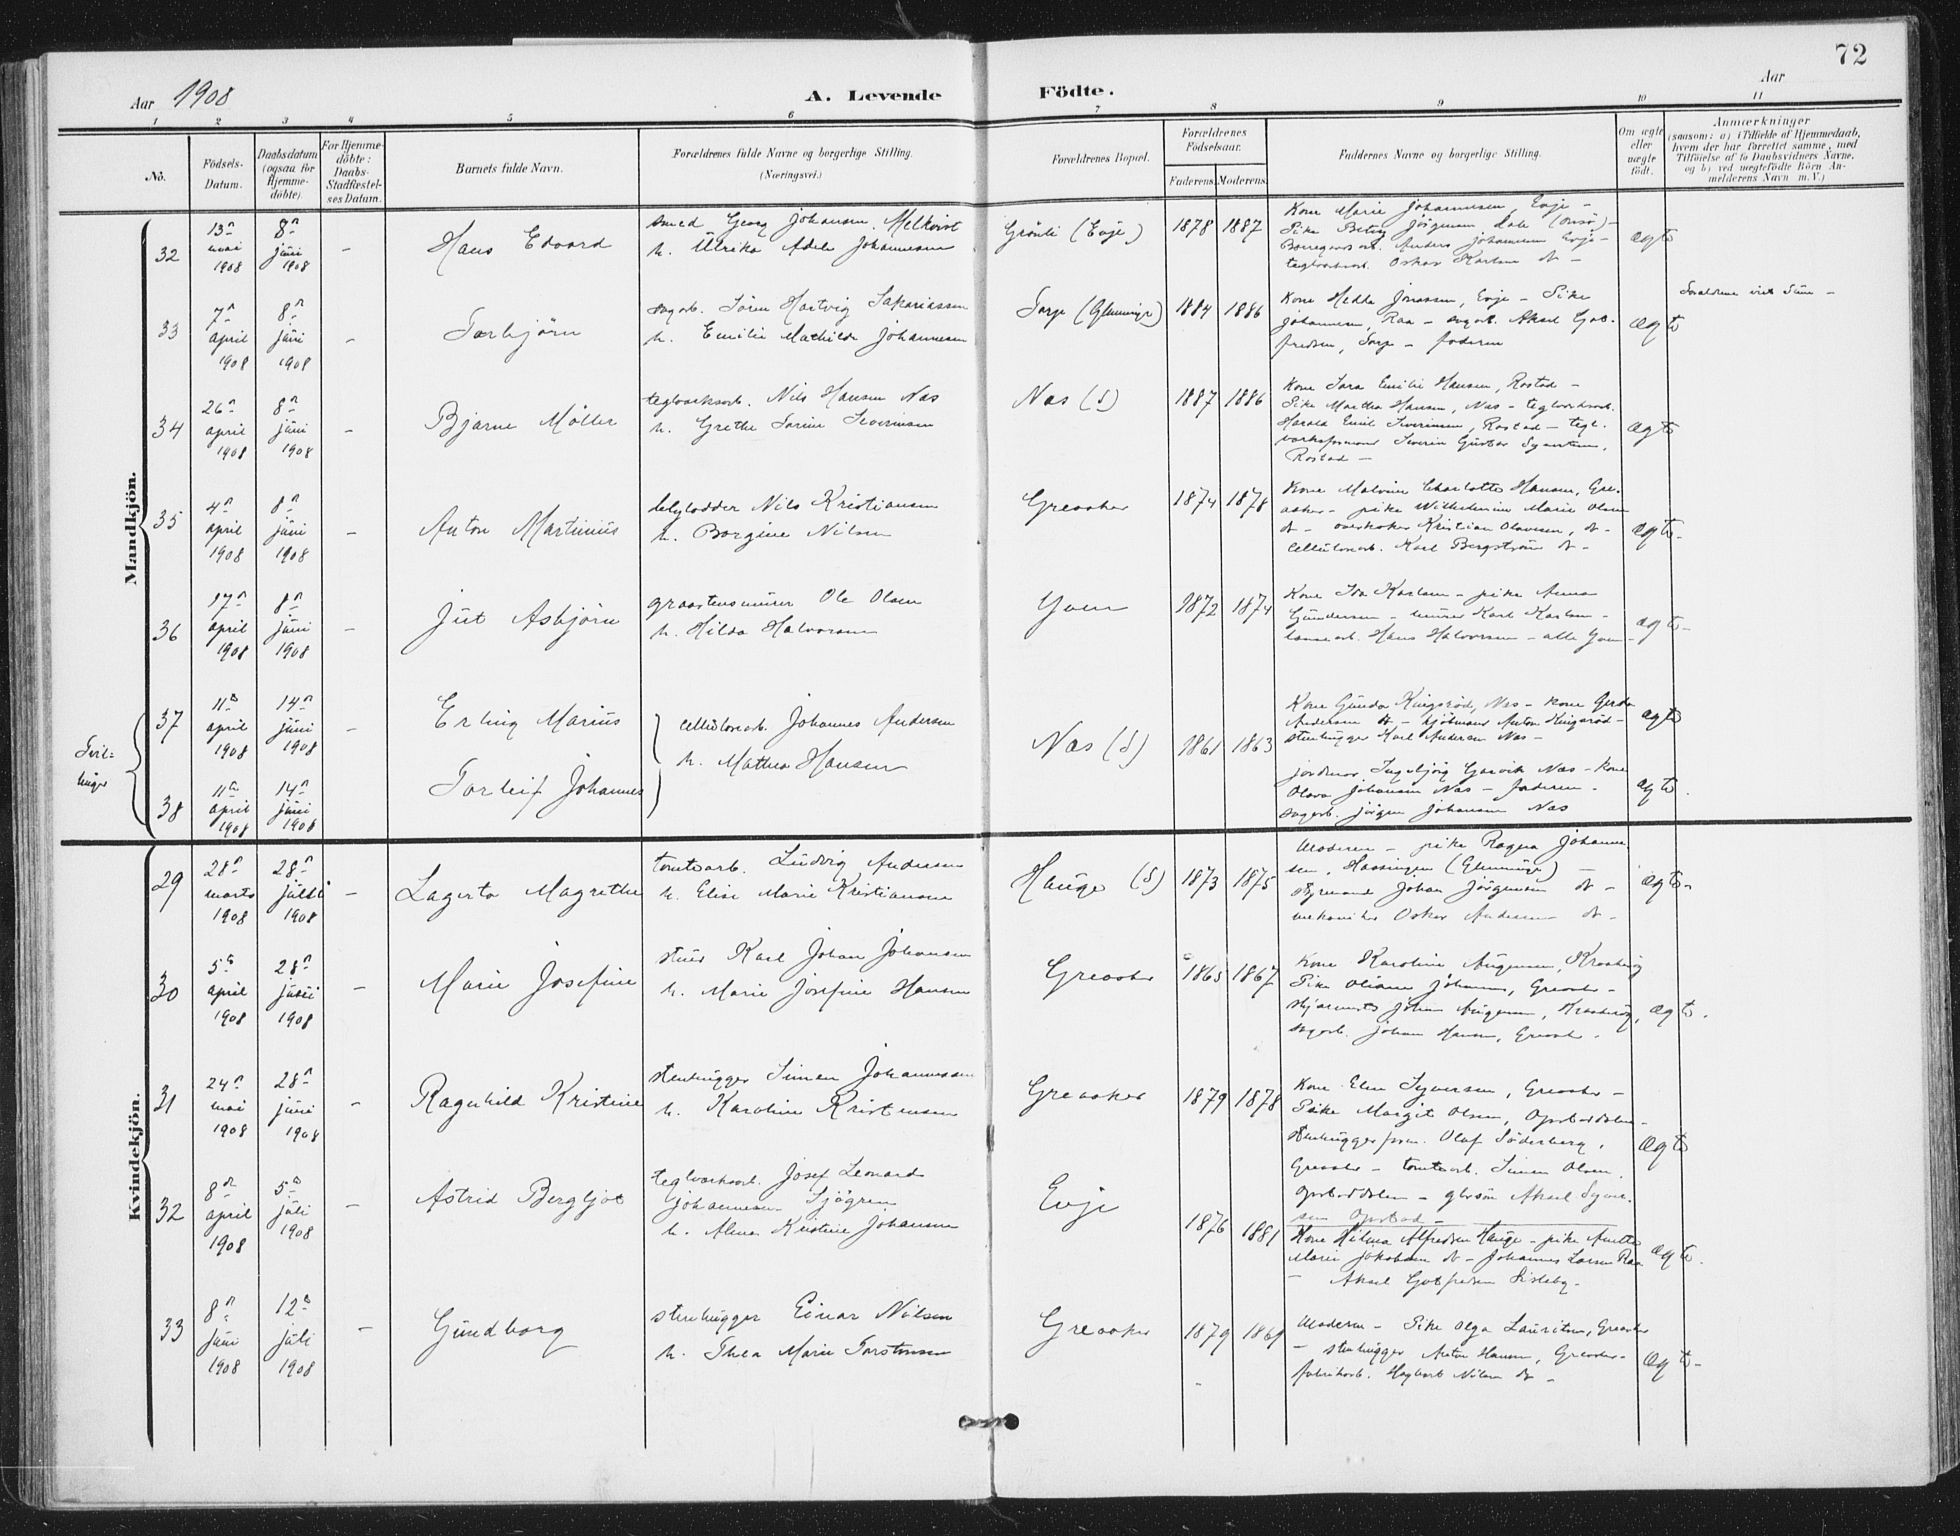 72
Aar 1908
A. Levende Födte.
Aar
1 2 3 4 5 6 7 8 9 10 11
No.
Födsels-
Datum.
Daabsdatum
(ogsaa for
Hjemme-
döbte).
For Hjemme-
döbte:
Daabs-
Stadfæstel-
ses Datum.
Barnets fulde Navn.
Forældrenes fulde Navne og borgerlige Stilling.
(Næringsvei.)
Forældrenes Bopæl.
Forældrenes
Födselsaar.
Faderens. Moderens.
Faddernes Navne og borgerlige Stilling.
Om ægte
eller
uægte
födt.
Anmærkninger
(saasom: a) i Tilfælde af Hjemmedaab,
hvem der har forrettet samme, med
Tilföielse af to Daabsvidners Navne,
og b) ved uægtefödte Börn An-
melderens Navn m. V.)
Mandkjön.
32
13de mai 1908
8de juni 1908
-
Hans Edvard
smed Georg Johansen Melkvist
h. Ulrika Adele Johannesen
Grönli (Evje)
1878 1887
Kone Marie Johannesen, Evje -
Pike Betzy Jörgensen,
Anders Johannesen Evje -
teglverksarb. Oskar Karlsen do -
ægte
33
7de april 1908
8de juni 1908
-
Torbjörn
sagarb. Sören Hartvig Sakariassen
h. Emilie Mathilde Johannesen
Torp (Glemminge)
1884 1886
Kone Hedda Jonassen, Evje - Pike
Johannesen, Raa - sagarb. Aksel Got-
fredsen, Torp - faderen
ægte
34
26de april 1908
8de juni 1908
-
Bjarne Möller
teglverksarb. Nils Hansen Næs
h. Grethe Sorine Severinsen
Næs (S)
1887 1886
Kone Sara Emilie Hansen, Rostad -
Pike Martha Hansen, Næs - teglverksarb.
Harald Emil Severinsen, Rostad - tegl-
verksformand Severin Gustav Syvertsen,
Rostad -
ægte
35
4de april 1908
8de juni 1908
-
Anton Martinius
Nils Kristiansen
h. Borgine Nilsen
Greaaker
1874 1878
Kone Malvine Charlotte Hansen, Gre-
aaker - pike Wilhelmine Marie Olsen
do - overkoker Kristian Olavesen, do -
cellulosearb. Karl Bergström do -
ægte -
36
17de april 1908
8de juni 1908
-
Jut Asbjörn
graastensmurer Ole Olsen
h. Hilda Halvorsen
Yven
1872 1874
Kone Ida Karlsen - pike Anna
Gundersen - murer Karl Karlsen -
Hans Halvorsen - alle Yven -
ægte -
Tvil-
linger
37
11te april 1908
14de juni 1908
-
Erling Marius
cellulosearb. Johannes Andersen
h. Mathea Hansen
Næs (S)
1861 1863
Kone Gunda Kingsrød, Næs - kone Gerda
Andersen do - Anton Kingsrød -
stenhugger Karl Andersen Næs -
ægte
38
11te april 1908
14de juni 1908
Torleif Johannes
jordmor Ingebjörg Næs - kone
Olava Johansen Næs - faderen -
sagarb. Jörgen Johansen Næs
ægte.
Kvindekjön.
29
28de marts 1908
28de 1908
-
Lagerta Magrethe
tomtearb. Ludvig Andersen
h. Elise Marie Kristiansen
Hauge (S)
1873 1875
Moderen - pike Ragna Johanne-
sen, (Glemminge) -
Johan Jörgensen do -
Oskar Andersen do -
ægte -
30
5te april 1908
28de juni 1908
-
Marie Josefine
stuer Karl Johan Johansen
h. Marie Josefine Hansen
Greaaker
1865 1867
Kone Karoline Augensen,
Pike Johansen, Greaaker -
Johan Augensen,
sagarb. Johan Hansen, Greaaker.
ægte.
31
24de mai 1908
28de juni 1908
-
Ragnhild Kristine
stenhugger Simen Johannessen
h. Karoline Kristensen
Greaaker
1879 1878
Kone Elen Syversen, Greaaker -
Pike Margit Olsen, Opstaddalen -
stenhuggerform. Olaf Söderberg,
Greaaker - tomtearb. Simen Olsen,
Opstaddalen - Aksel Syver-
sen Opstad -
ægte
32
8de april 1908
5te juli 1908
-
Astrid Bergljot
teglverksarb. Josef Leonard
Johannesen Sjögren
h. Alma Kristine Johansen
Evje
1876 1881
Kone Hilma Alfredsen Hauge - pike Anette
Marie Jakobsen do - Johannes Larsen Raa
- Aksel Gotfredsen Lisleby -
ægte.
33
8de juni 1908
12te juli 1908
-
Gundborg
stenhugger Einar Nilsen
h. Thea Marie Torstensen
Greaaker
1879 1869
Moderen - Pike Olga Lauritsen, Greaaker
- stenhugger Anton Hansen, Greaaker -
fabrikarb. Hagbart Nilsen do -
ægte -